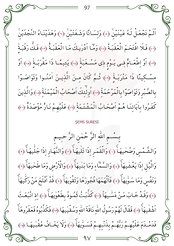 97
اَلَمْ نَجْعَلْ لَهُ عَيْنَيْنِۙ ﴿٨﴾ وَلِسَانًا وَشَفَتَيْنِۙ ﴿٩﴾ وَهَدَيْنَاهُ النَّجْدَيْنِۚ
﴿١٠﴾ فَلَا اقْتَحَمَ الْعَقَبَةَۘ ﴿١١﴾ وَمَٓا اَدْرٰيكَ مَا الْعَقَبَةُۜ ﴿١٢﴾ فَكُّ رَقَبَةٍۙ
﴿١٣﴾ اَوْ اِطْعَامٌ ف۪ي يَوْمٍ ذ۪ي مَسْغَبَةٍۙ ﴿١٤﴾ يَت۪يمًا ذَا مَقْرَبَةٍۙ ﴿١٥﴾ اَوْ
مِسْك۪ينًا ذَا مَتْرَبَةٍۜ ﴿١٦﴾ ثُمَّ كَانَ مِنَ الَّذ۪ينَ اٰمَنُوا وَتَوَاصَوْا
بِالصَّبْرِ وَتَوَاصَوْا بِالْمَرْحَمَةِۜ ﴿١٧﴾ اُو۬لٰٓئِكَ اَصْحَابُ الْمَيْمَنَةِۜ ﴿١٨﴾ وَالَّذ۪ينَ
كَفَرُوا بِاٰيَاتِنَا هُمْ اَصْحَابُ الْمَشْـَٔمَةِۜ ﴿١٩﴾ عَلَيْهِمْ نَارٌ مُؤْصَدَةٌ ﴿٢٠﴾
ŞEMS SURESİ
بِسْمِ اللّٰهِ الرَّحْمٰنِ الرَّح۪يمِ
وَالشَّمْسِ وَضُحٰيهَاۙ ﴿١﴾ وَالْقَمَرِ اِذَا تَلٰيهَاۙ ﴿٢﴾ وَالنَّهَارِ اِذَا جَلّٰيهَاۙ ﴿٣﴾
وَالَّيْلِ اِذَا يَغْشٰيهَاۙ ﴿٤﴾ وَالسَّمَٓاءِ وَمَا بَنٰيهَاۙ ﴿٥﴾ وَالْاَرْضِ وَمَا طَحٰيهَاۙ ﴿٦﴾
وَنَفْسٍ وَمَا سَوّٰيهَاۙ ﴿٧﴾ فَاَلْهَمَهَا فُجُورَهَا وَتَقْوٰيهَاۙ ﴿٨﴾ قَدْ اَفْلَحَ مَنْ زَكّٰيهَاۙ
﴿٩﴾ وَقَدْ خَابَ مَنْ دَسّٰيهَاۜ ﴿١٠﴾ كَذَّبَتْ ثَمُودُ بِطَغْوٰيهَاۙۖ ﴿١١﴾ اِذِ انْبَعَثَ
اَشْقٰيهَاۙۖ ﴿١٢﴾ فَقَالَ لَهُمْ رَسُولُ اللّٰهِ نَاقَةَ اللّٰهِ وَسُقْيٰيهَاۜ ﴿١٣﴾ فَكَذَّبُوهُ فَعَقَرُوهَاۙۖ
فَدَمْدَمَ عَلَيْهِمْ رَبُّهُمْ بِذَنْبِهِمْ فَسَوّٰيهَاۙۖ ﴿١٤﴾ وَلَا يَخَافُ عُقْبٰيهَا ﴿١٥﴾
٩٧